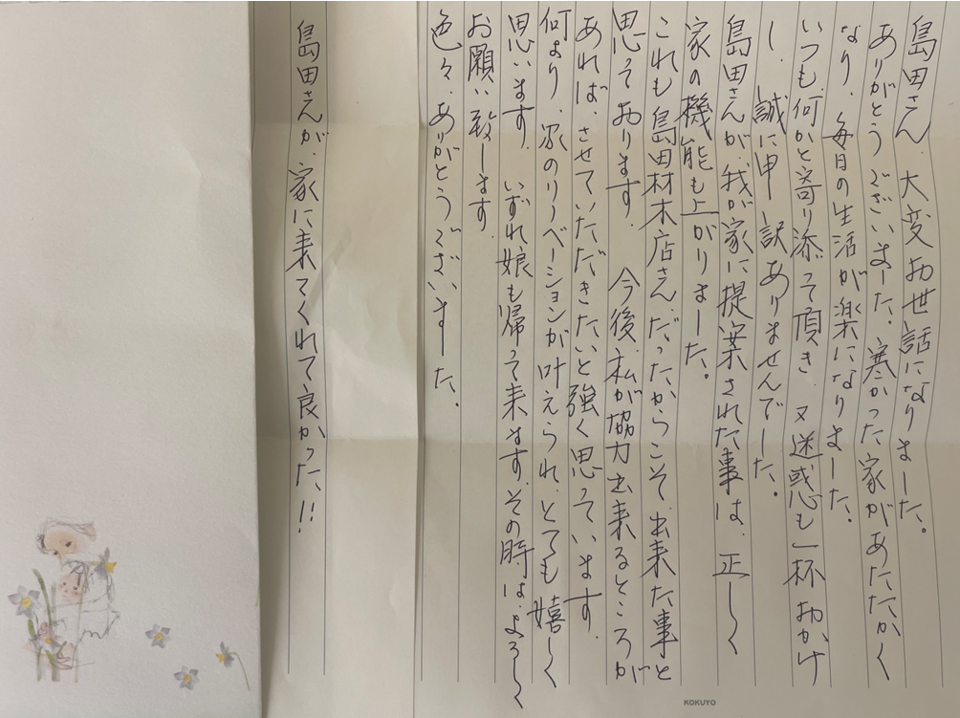 島田さん、大変お世話になりました。
ありがとうございました。寒かった家があたたかく
なり、毎日の生活が楽になりました。
いつも何かと寄り添って頂き、又迷惑も一杯おかけ
し、誠に申し訳ありませんでした。
島田さんが、我が家に提案された事は、正しく
家の機能も上がりました。
これも島田材木店さんだったからこそ、出来た事と
思っております。 今後、私が協力出来るところが
あれば、させていただきたいと強く思っています。
何より、家のリノベーションが叶えられ、とても嬉しく
思います。 いずれ娘も帰って来ます。その時は、よろしく
お願い致します。
色々、ありがとうございました。
島田さんが、家に来てくれて良かった!!
KOKUYO